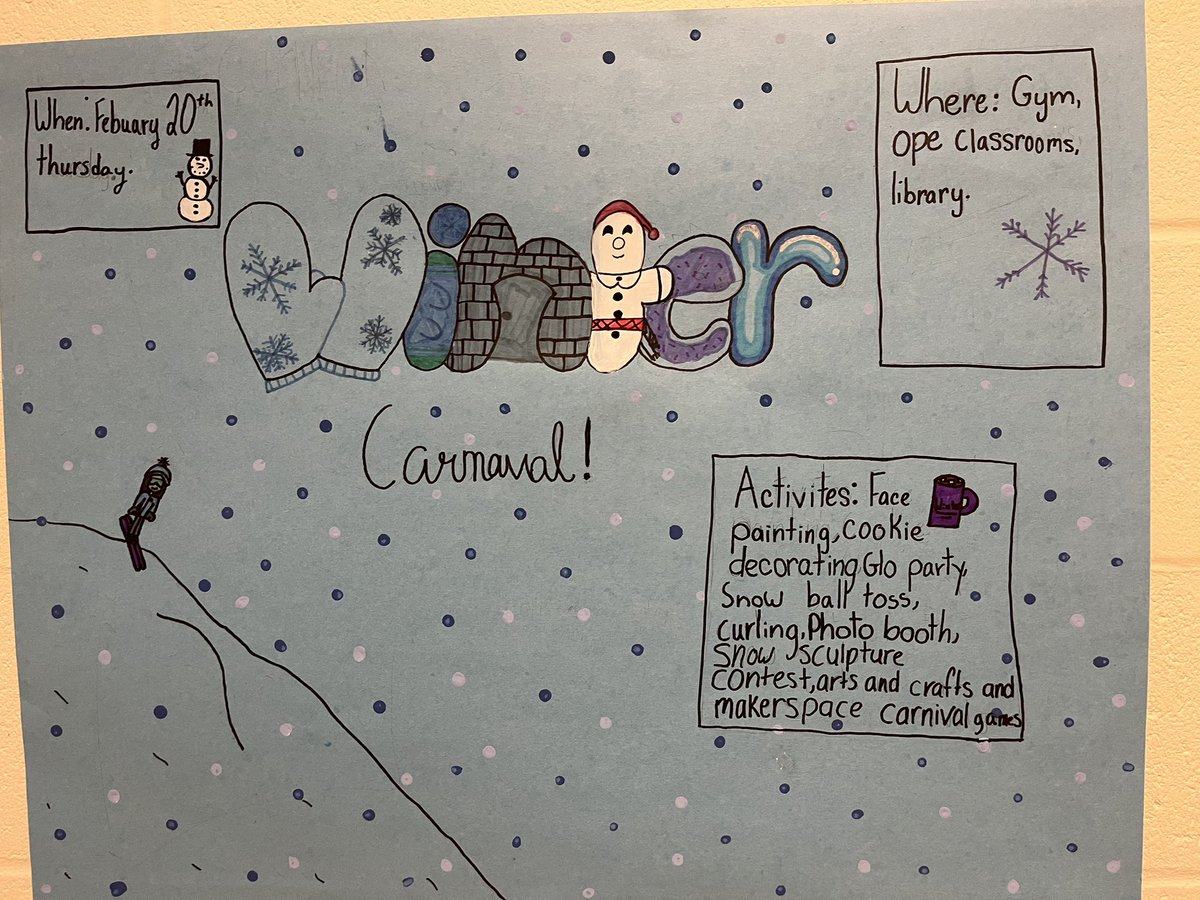 When: Febuary 20th
thursday.
Where: Gym,
Ope classrooms,
library.
Winter
Carnaval!
Activites: Face
painting, cookie
decorating Glo party,
Snow ball toss,
curling, Photo booth,
Snow sculpture
contest, arts and crafts and
makerspace carnival games